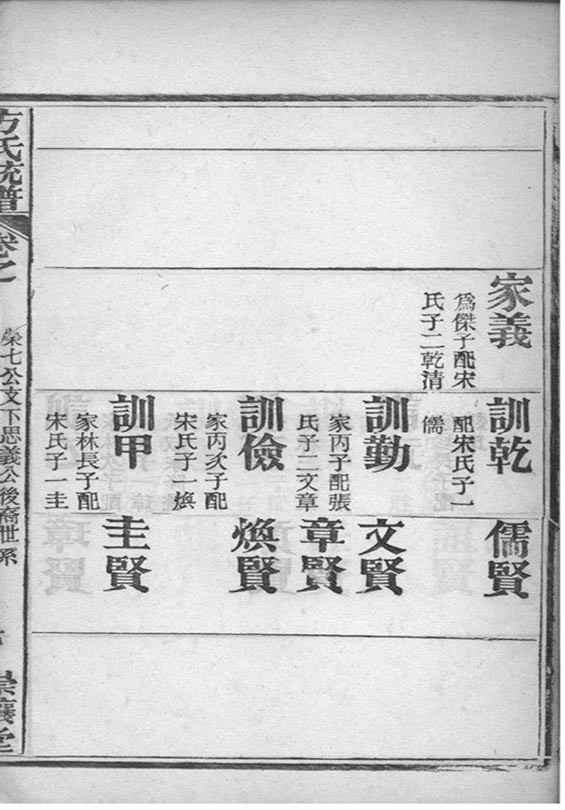 家義
爲傑子配宋
氏子二乾清
訓乾
配宋氏子一
儒
訓勤
家丙子配張
氏子二文章
訓儉
家丙次子配
宋氏子一煥
訓甲
家林長子配
宋氏子一圭
儒賢
文賢
章賢
煥賢
圭賢
方氏統譜
卷之
榮七公支下思義公後裔世系
崇讓堂